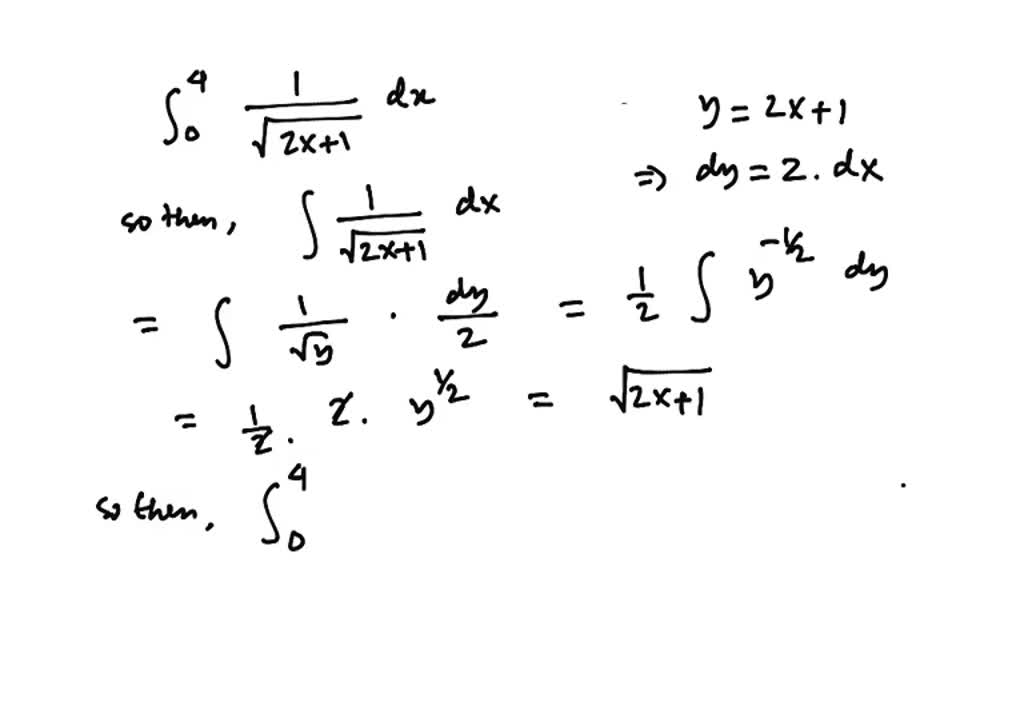 ∫₀⁴ 1/√(2x+1) dx
y = 2x+1
⇒ dy = 2. dx
so then, ∫ 1/√(2x+1) dx
= ∫ 1/√y · dy/2 = 1/2 ∫ y^(-1/2) dy
= 1/2 . 2. y^(1/2) = √(2x+1)
so then, ∫₀⁴